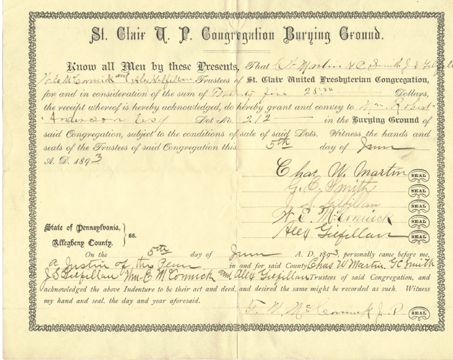 St. Clair U. P. Congregation Burying Ground.
Know all Men by these Presents, That C W Martin G C Smith J S Gilfillan
McCormick and Alex Gilfillan Trustees of St. Clair United Presbyterian Congregation,
for and in consideration of the sum of 28 Dollars,
the receipt whereof is hereby acknowledged, do hereby grant and convey to Wm. Robert
Anderson Esq Lot No. 212 in the Burying Ground of
said Congregation, subject to the conditions of sale of said Lots. Witness the hands
and seals of the Trustees of said Congregation this 5th day of June
A. D. 1893
Chas W. Martin SEAL
G. C. Smith SEAL
J. S. Gilfillan SEAL
W. E. McCormick SEAL
Alex Gilfillan SEAL
State of Pennsylvania,
Allegheny County. } ss.
On the 5th day of June A. D. 1893 personally came before me,
a Justice of the Peace in and for said County Chas W Martin G C Smith
J S Gilfillan Wm. E McCormick and Alex Gilfillan Trustees of said Congregation, and
acknowledged the above Indenture to be their act and deed, and desired the same might be recorded as such. Witness
my hand and seal, the day and year aforesaid.
McCormick J. P. SEAL